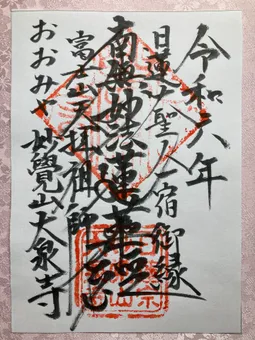 令和六年
日蓮大聖人一宿御縁
南無妙法蓮華経
富士山天拝祖師
おおみや 妙覺山大泉寺